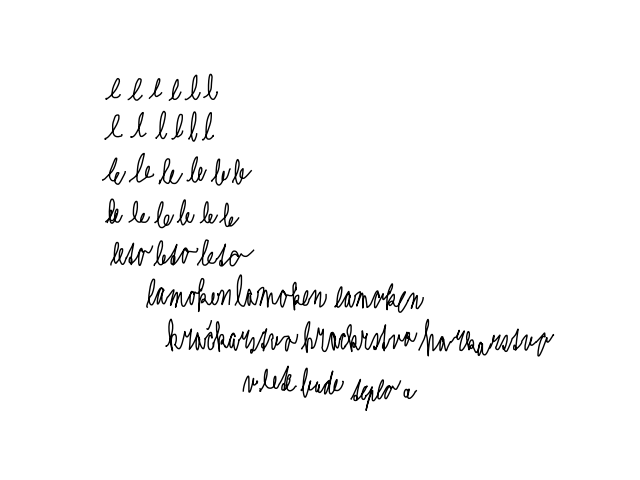 l l l l l l
l l l l l l
le le le le le le
le le le le le le
leto leto leto
lamoken lamoken lamoken
kračkarstvo hrackrstvo harkarstvo
v lete bude teplo a